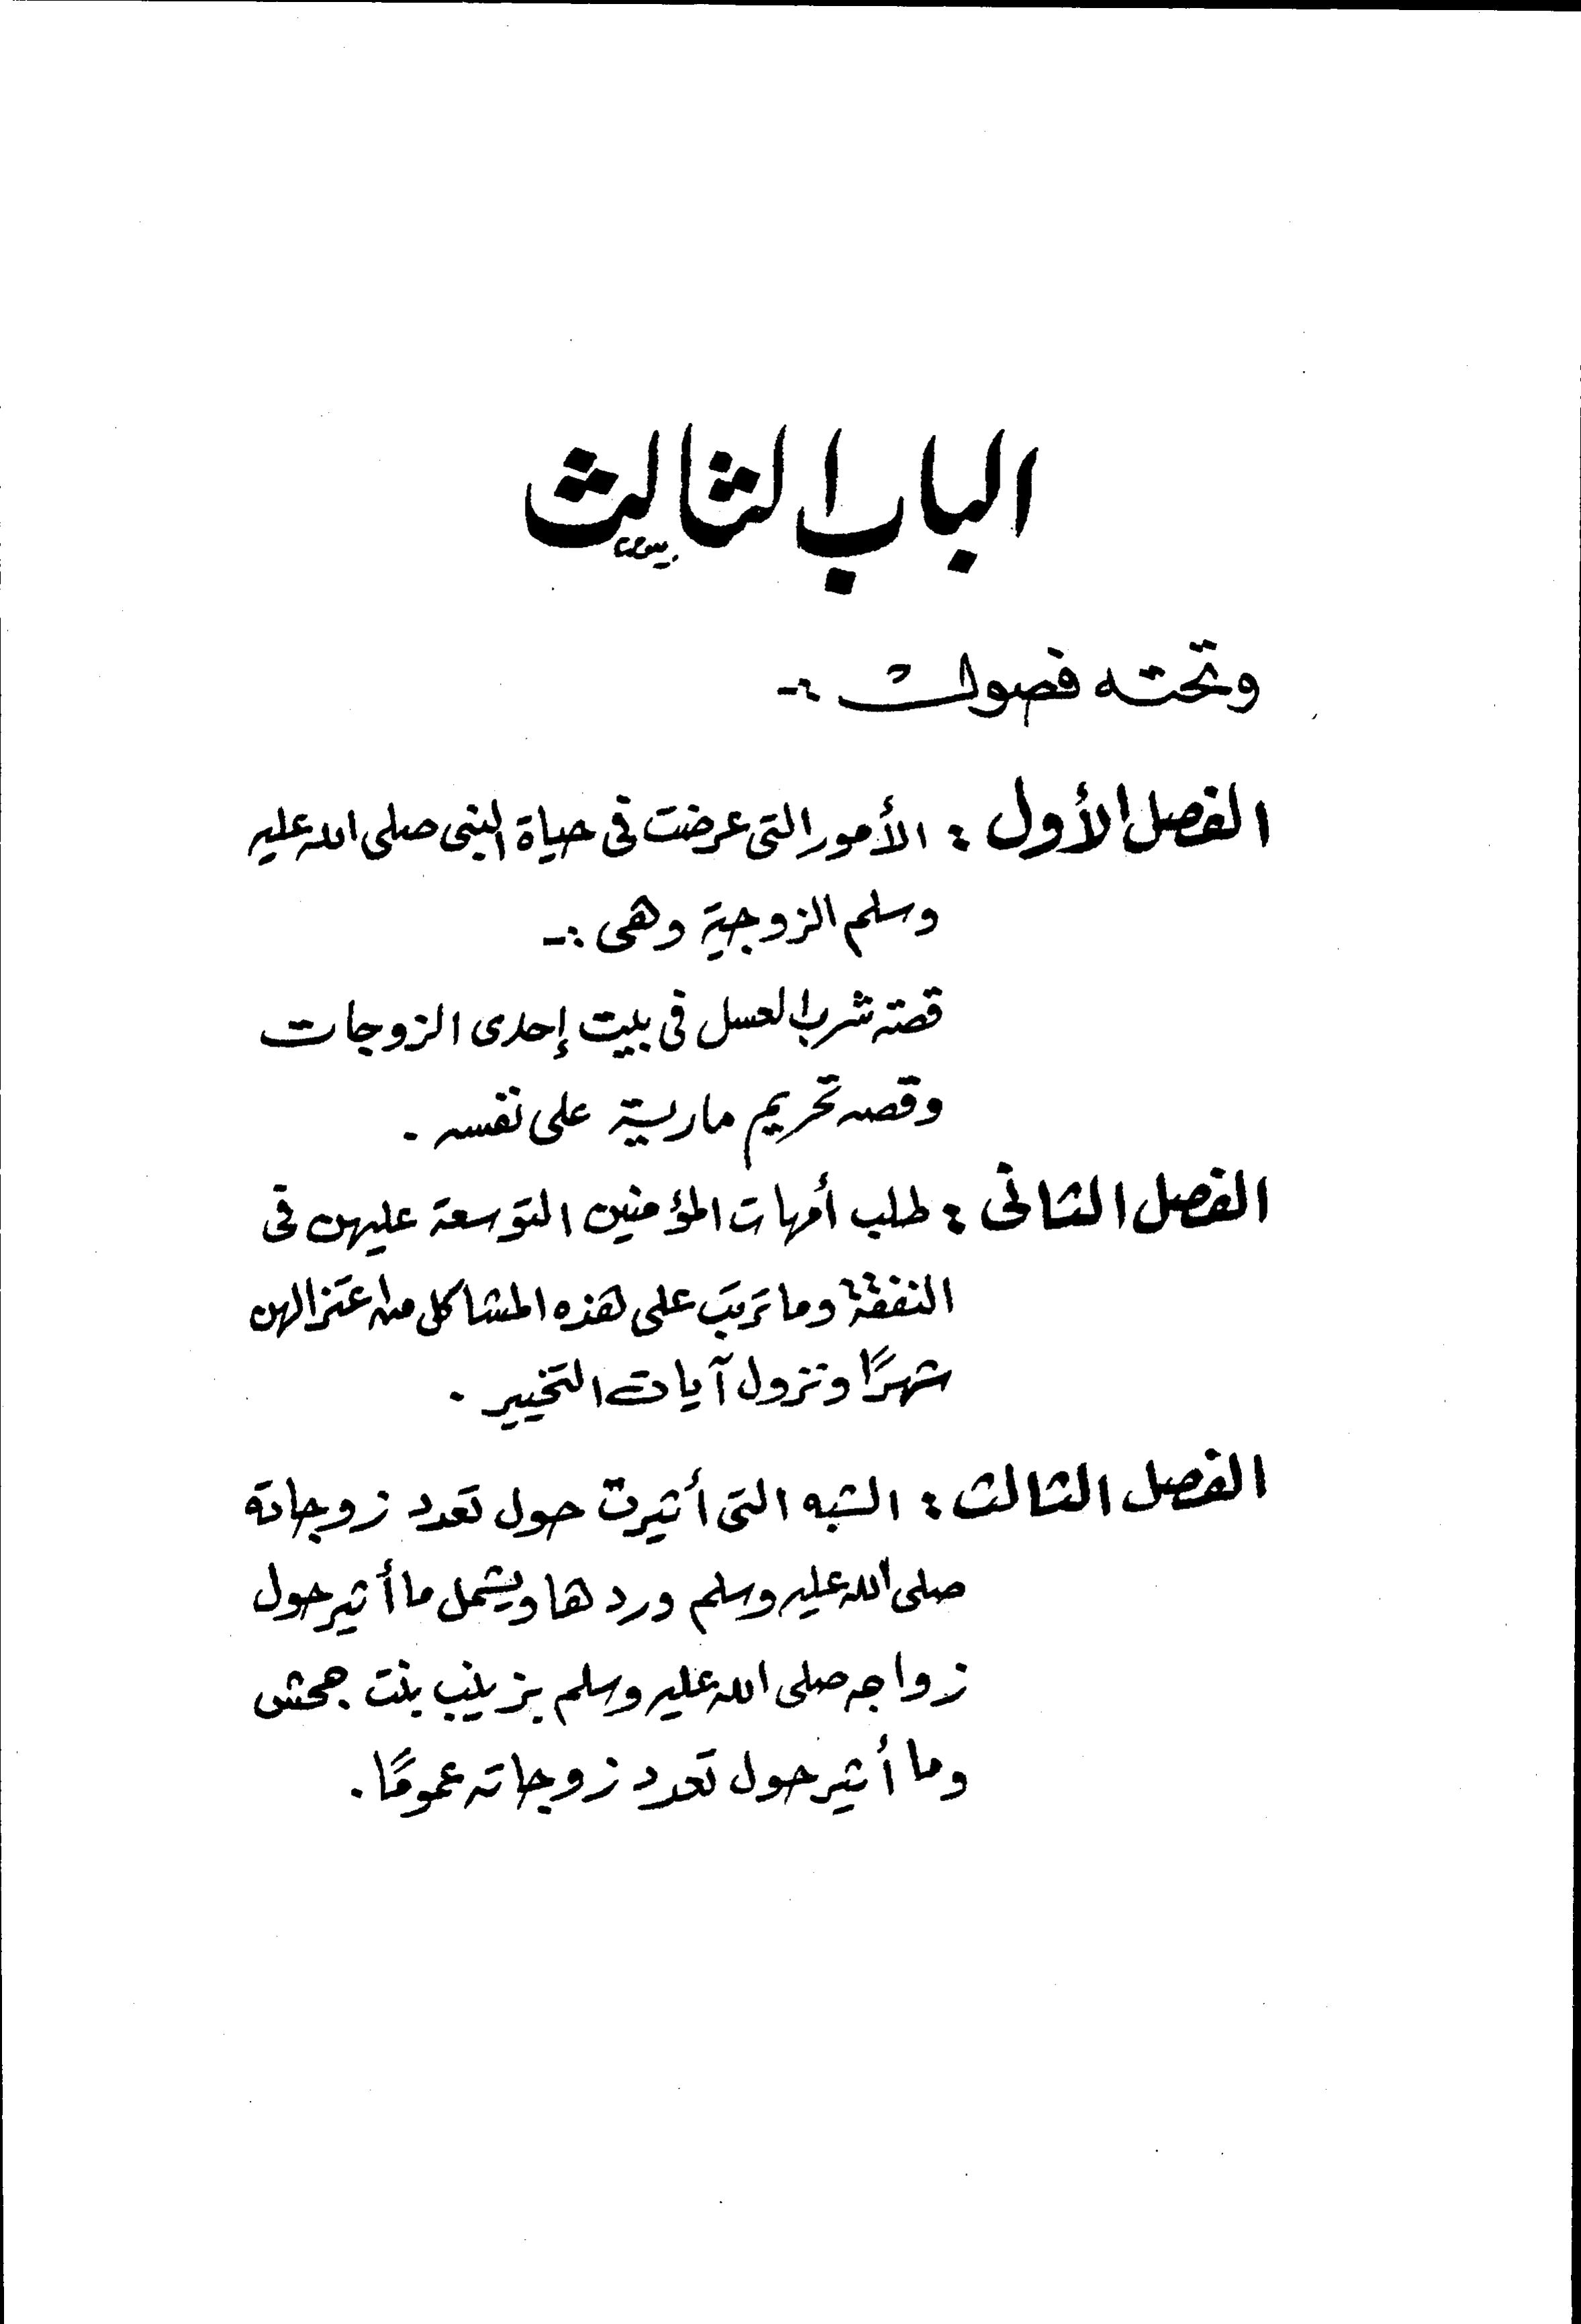 الباب الثالث
وتحته فصول :-
الفصل الأول : الأمور التى عرضت فى حياة النبى صلى الله عليه
وسلم الزوجية وهى :-
قصة شرب العسل فى بيت إحدى الزوجات
وقصه تحريم مارية على نفسه .
الفصل الثانى : طلب أمهات المؤمنين التوسعة عليهن فى
النفقة وما ترتب على هذه المشاكل من اعتزالهن
شهرًا ونزول آيات التخيير .
الفصل الثالث : الشبه التى أثيرت حول تعدد زوجاته
صلى الله عليه وسلم وردها ويشمل ما أثير حول
زواجه صلى الله عليه وسلم بزينب بنت جحش
وما أثير حول تعدد زوجاته عمومًا .